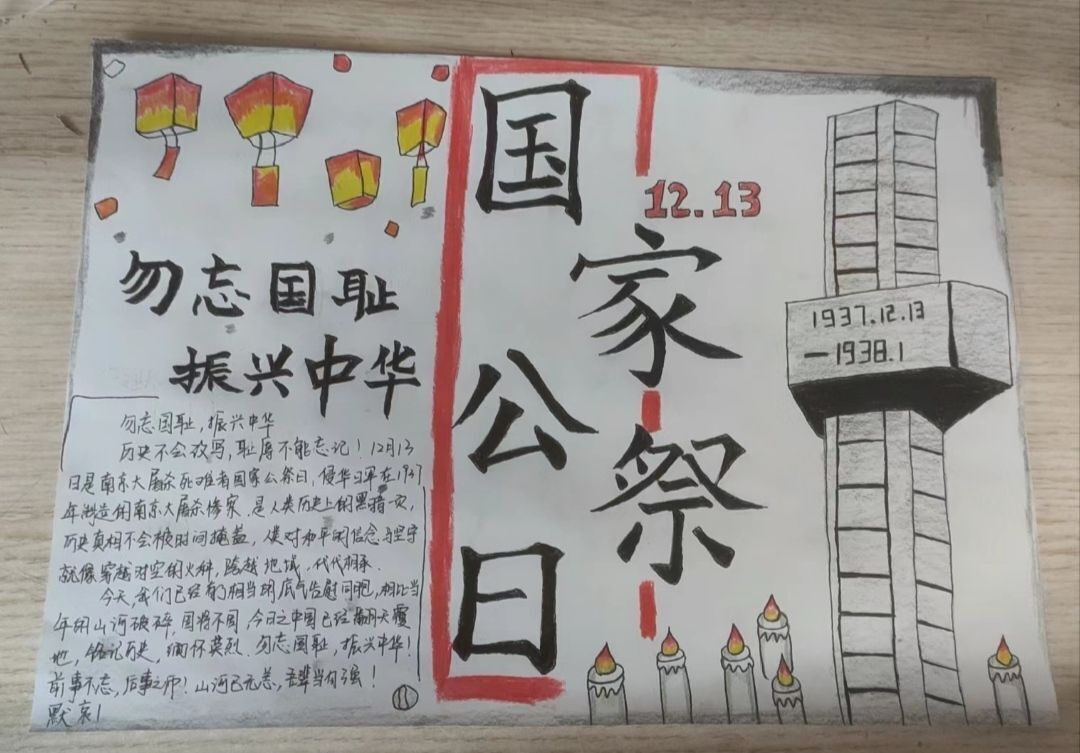 勿忘国耻
振兴中华
勿忘国耻,振兴中华
历史不会改写,耻辱不能忘记!12月13
日是南京大屠杀死难者国家公祭日,侵华日军在1937
年制造的南京大屠杀惨案,是人类历史上的黑暗一页,
历史真相不会被时间掩盖,人类对和平的信念与坚守
就像穿越时空的火种,跨越地域,代代相承.
今天,我们已经有了相当的底气告慰同胞,相比当
年的山河破碎,国将不国,今日之中国已经翻天覆
地,铭记历史,缅怀英烈.勿忘国耻,振兴中华!
前事不忘,后事之师!山河已无恙,吾辈当自强!
默哀!
国家公祭日
12.13
1937.12.13
—1938.1